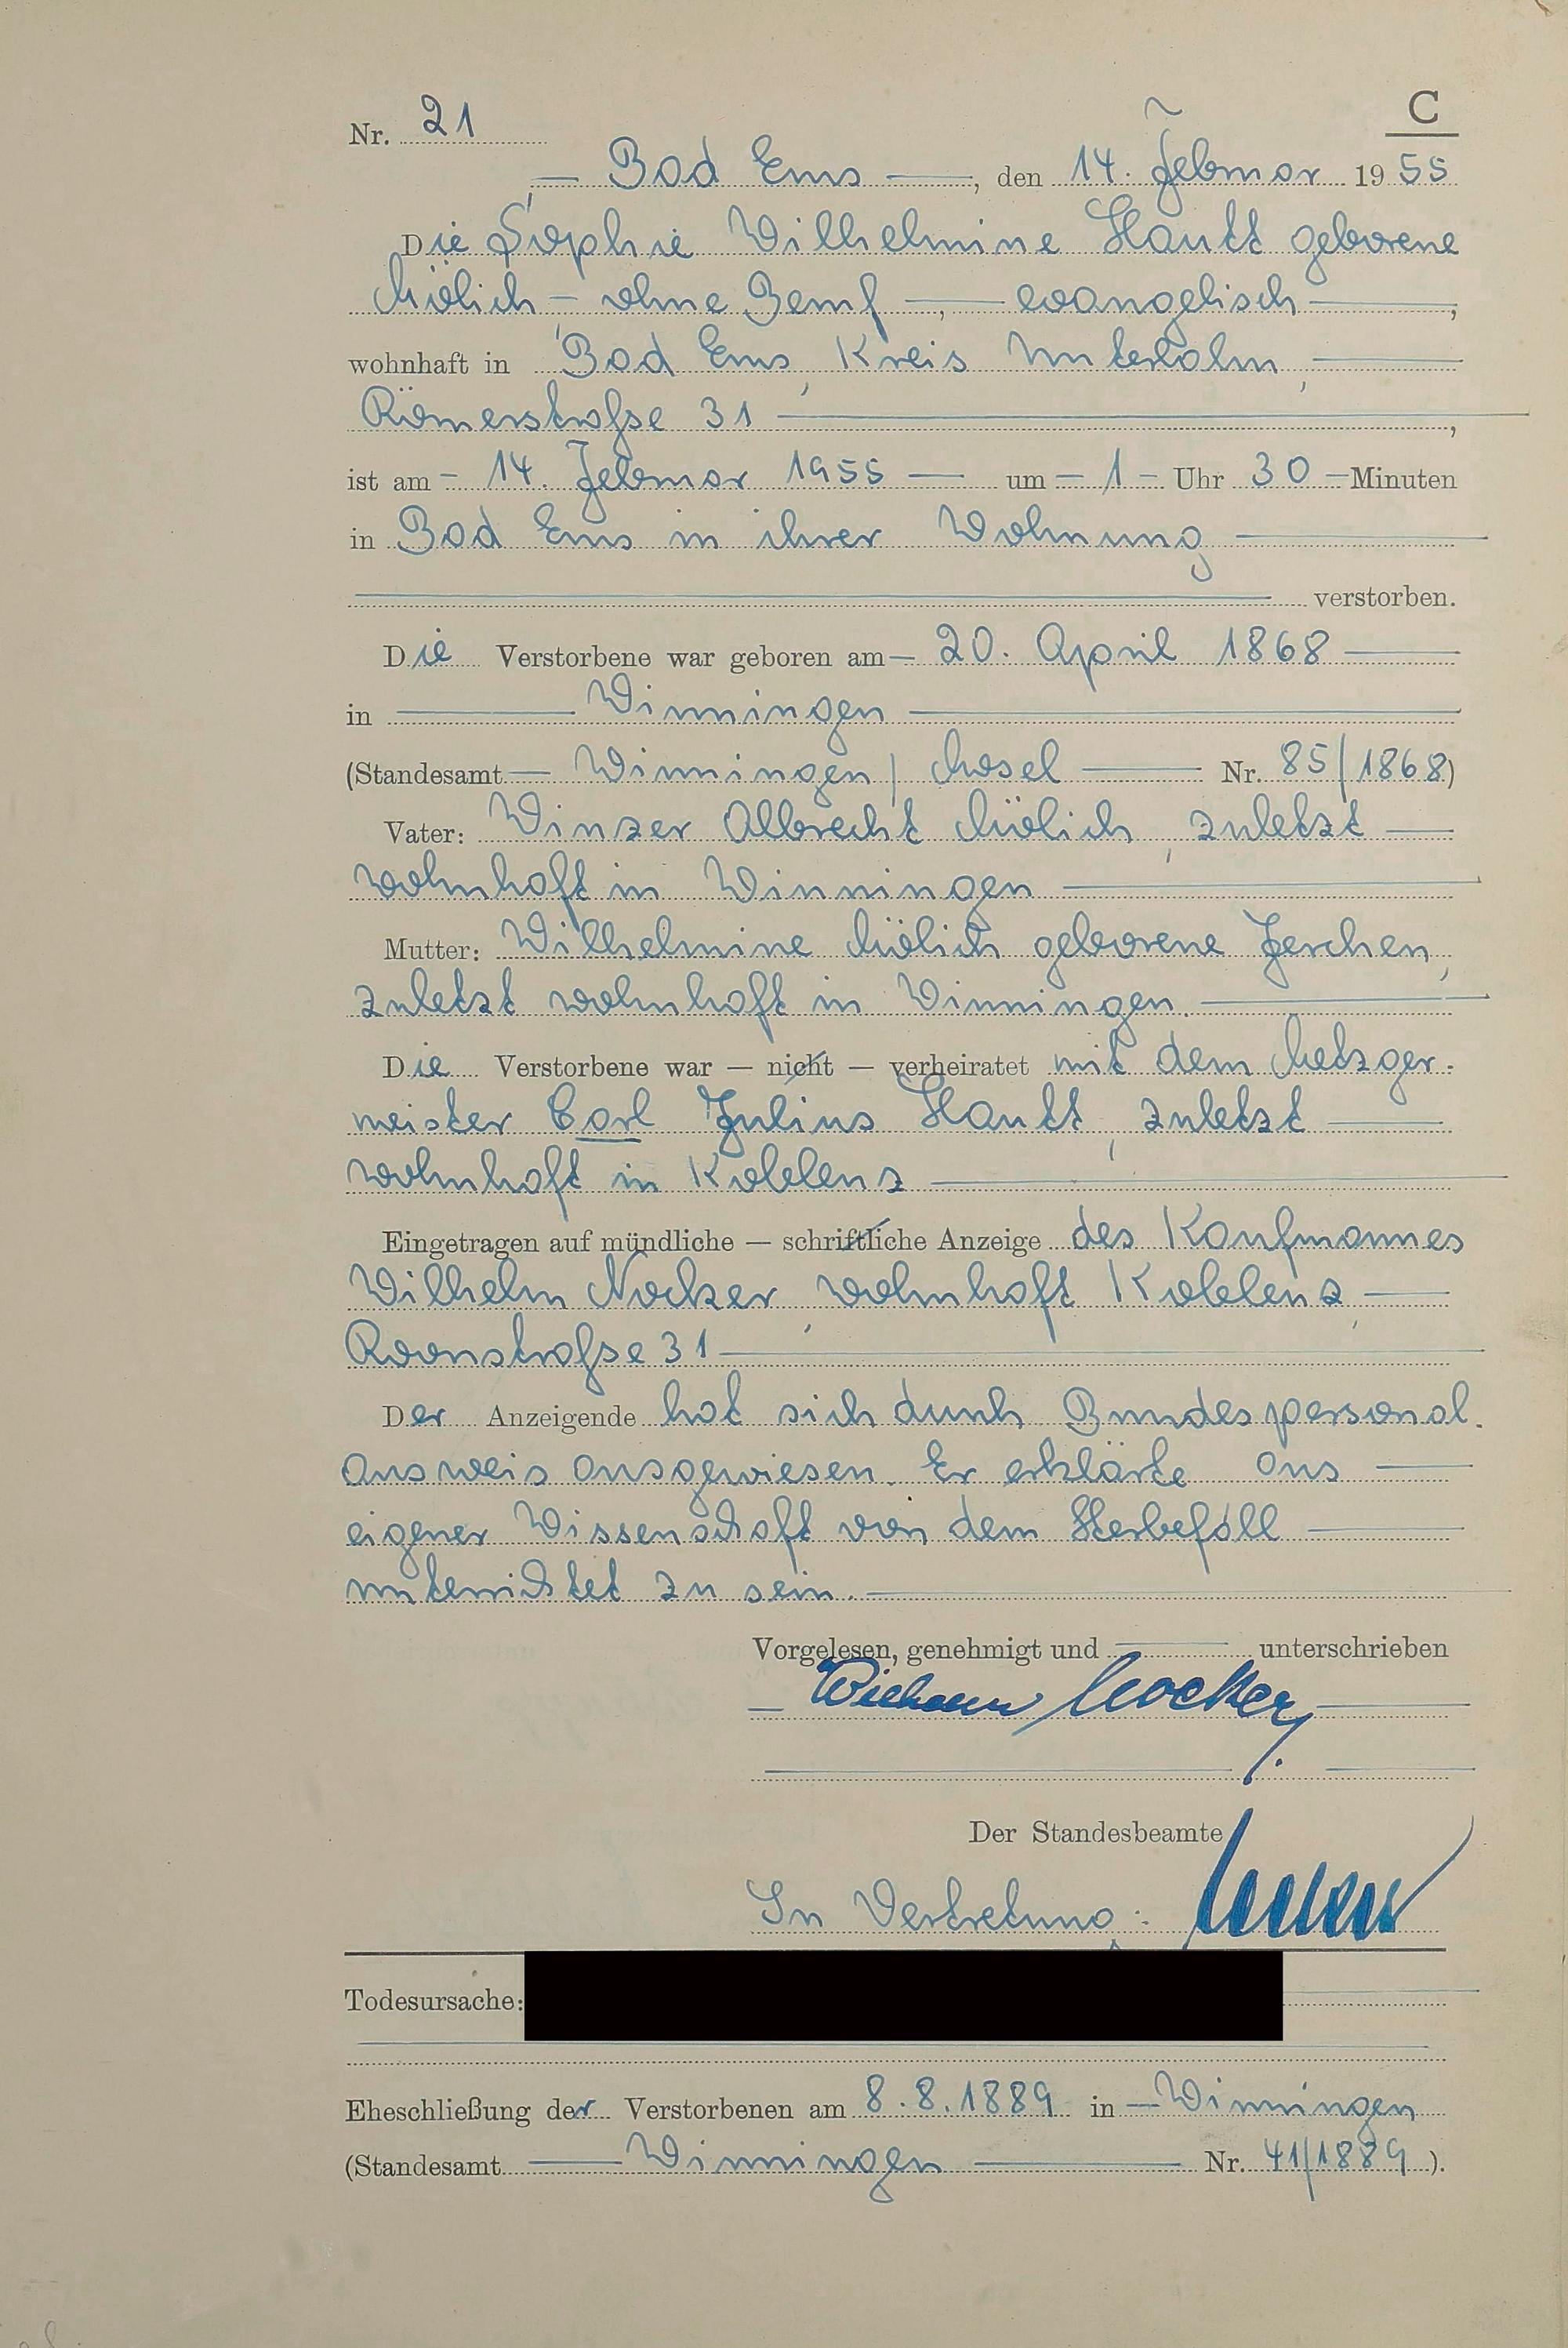 C
Nr. 21
— Bad Ems —, den 14. Februar 1955
Die Sophie Wilhelmine Hautt geborene
Mölich – ohne Beruf —, — evangelisch —,
wohnhaft in Bad Ems, Kreis Unterlahn, —
Römerstraße 31 —,
ist am – 14. Februar 1955 — um – 1 – Uhr 30 – Minuten
in Bad Ems in ihrer Wohnung —
— verstorben.
Die Verstorbene war geboren am – 20. April 1868 —
in — Winningen —
(Standesamt — Winningen / Mosel — Nr. 85/1868)
Vater: Winzer Albrecht Mölich, zuletzt —
wohnhaft in Winningen —
Mutter: Wilhelmine Mölich geborene Ferchen,
zuletzt wohnhaft in Winningen. —
Die Verstorbene war — nicht — verheiratet mit dem Metzger-
meister Carl Julius Hautt, zuletzt —
wohnhaft in Koblenz —
Eingetragen auf mündliche — schriftliche Anzeige des Kaufmannes
Wilhelm Nocker, wohnhaft Koblenz, —
Roonstraße 31 —
Der Anzeigende hat sich durch Bundespersonal-
ausweis ausgewiesen. Er erklärte aus —
eigener Wissenschaft von dem Sterbefall —
unterrichtet zu sein. —
Vorgelesen, genehmigt und — unterschrieben
— Wilhelm Nocker —
Der Standesbeamte
In Vertretung:
Todesursache:
Eheschließung der Verstorbenen am 8.8.1889 in — Winningen
(Standesamt — Winningen — Nr. 41/1889).